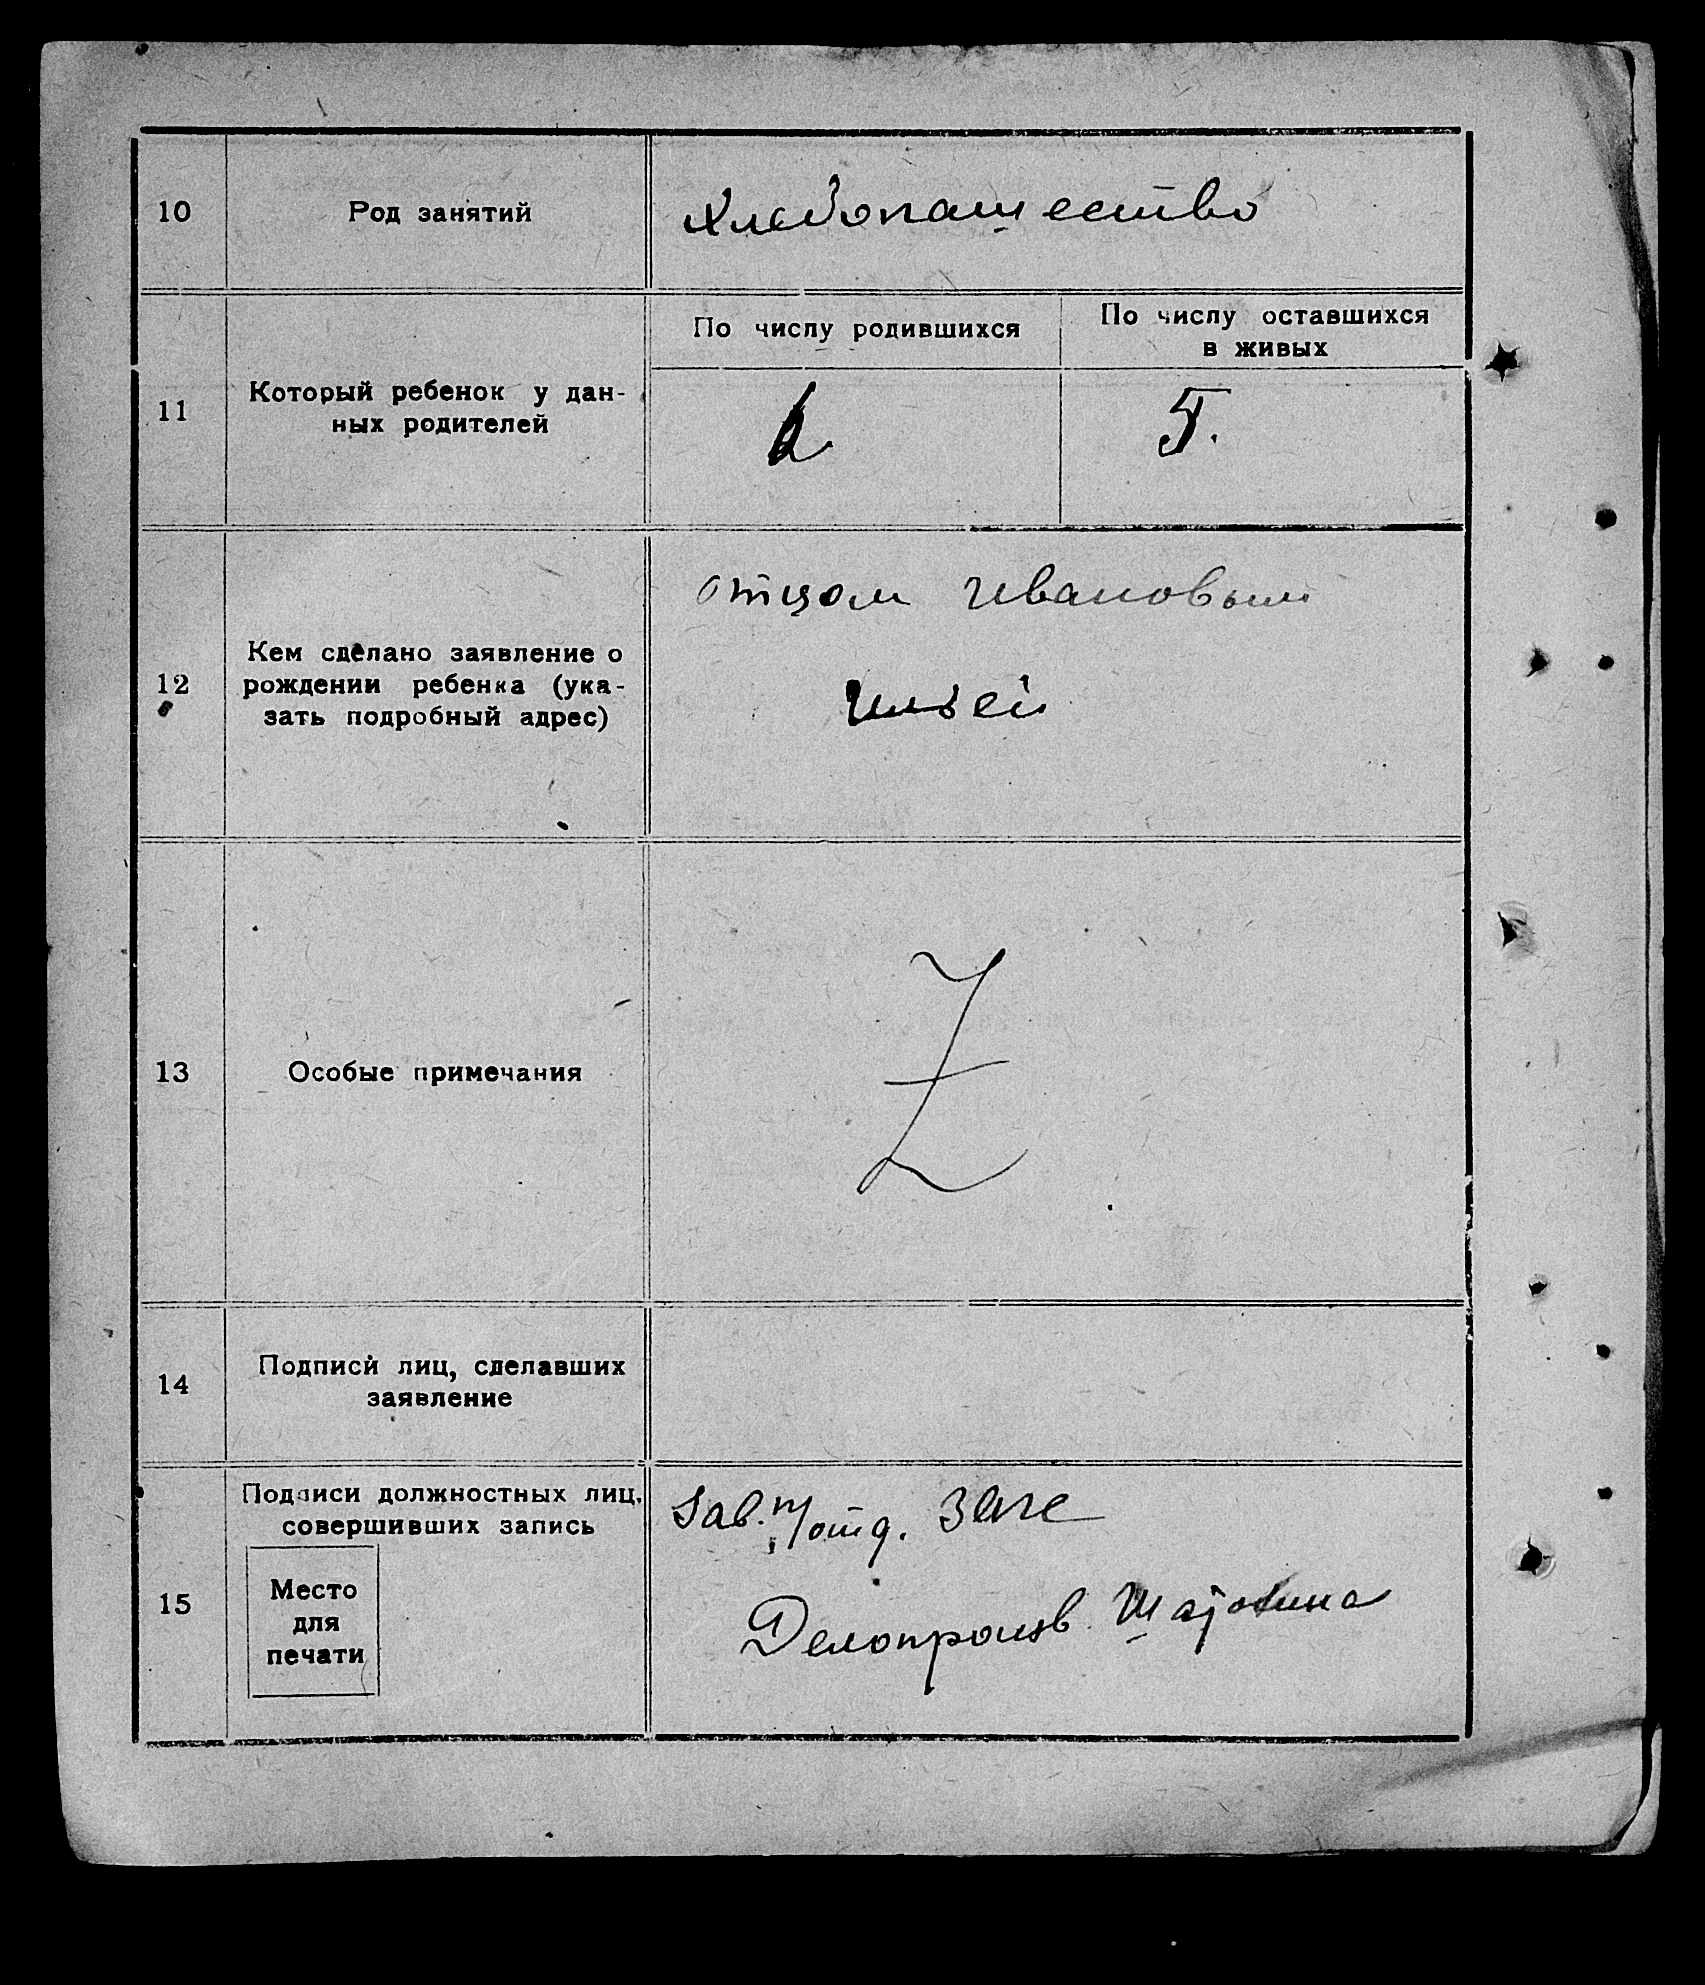 10
Род занятий
Хлебопашество
11
Который ребенок у дан-
ных родителей
По числу родившихся
По числу оставшихся
в живых
5.
12
Кем сделано заявление о
рождении ребенка (ука-
зать подробный адрес)
отцом Ивановым
Ильей
13
Особые примечания
Z
14
Подписи лиц, сделавших
заявление
15
Подписи должностных лиц,
совершивших запись
Место
для
печати
Зав. п/отд. Загс
Делопроизв.